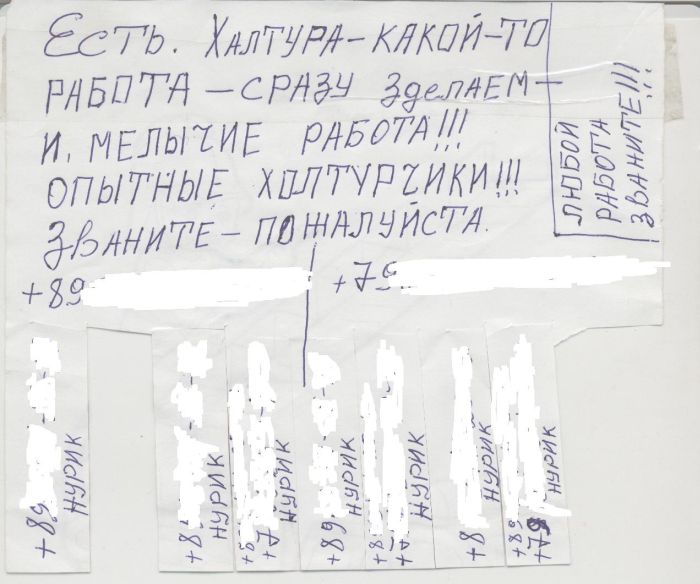 Есть. Халтура-какой-то
РАБОТА - СРАЗУ ЗделАЕМ -
И. МЕЛЫЧИЕ РАБОТА!!!
ОПЫТНЫЕ ХОЛТУРЧИКИ!!!
ЗВАНИТЕ - ПОЖАЛУЙСТА.
ЛЮБОЙ
РАБОТА
ЗВАНИТЕ!!!
+89
+79
+89
НУРИК
+8
НУРИК
НУРИК
+89
НУРИК
НУРИК
+8
НУРИК
+89
+79
НУРИК